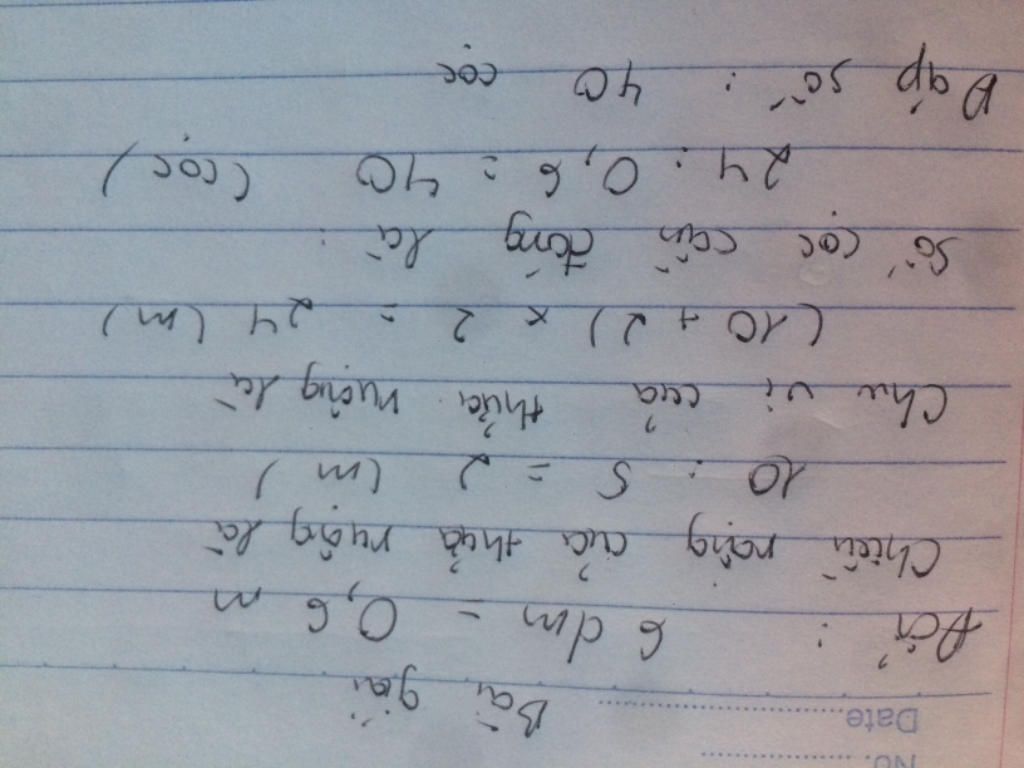 No.
Date
Bài giải
Đổi : 6 dm = 0,6 m
Chiều rộng của thửa ruộng là
10 : 5 = 2 (m)
Chu vi của thửa ruộng là
(10 + 2) x 2 = 24 (m)
Số cọc cần đóng là :
24 : 0,6 = 40 (cọc)
Đáp số : 40 cọc